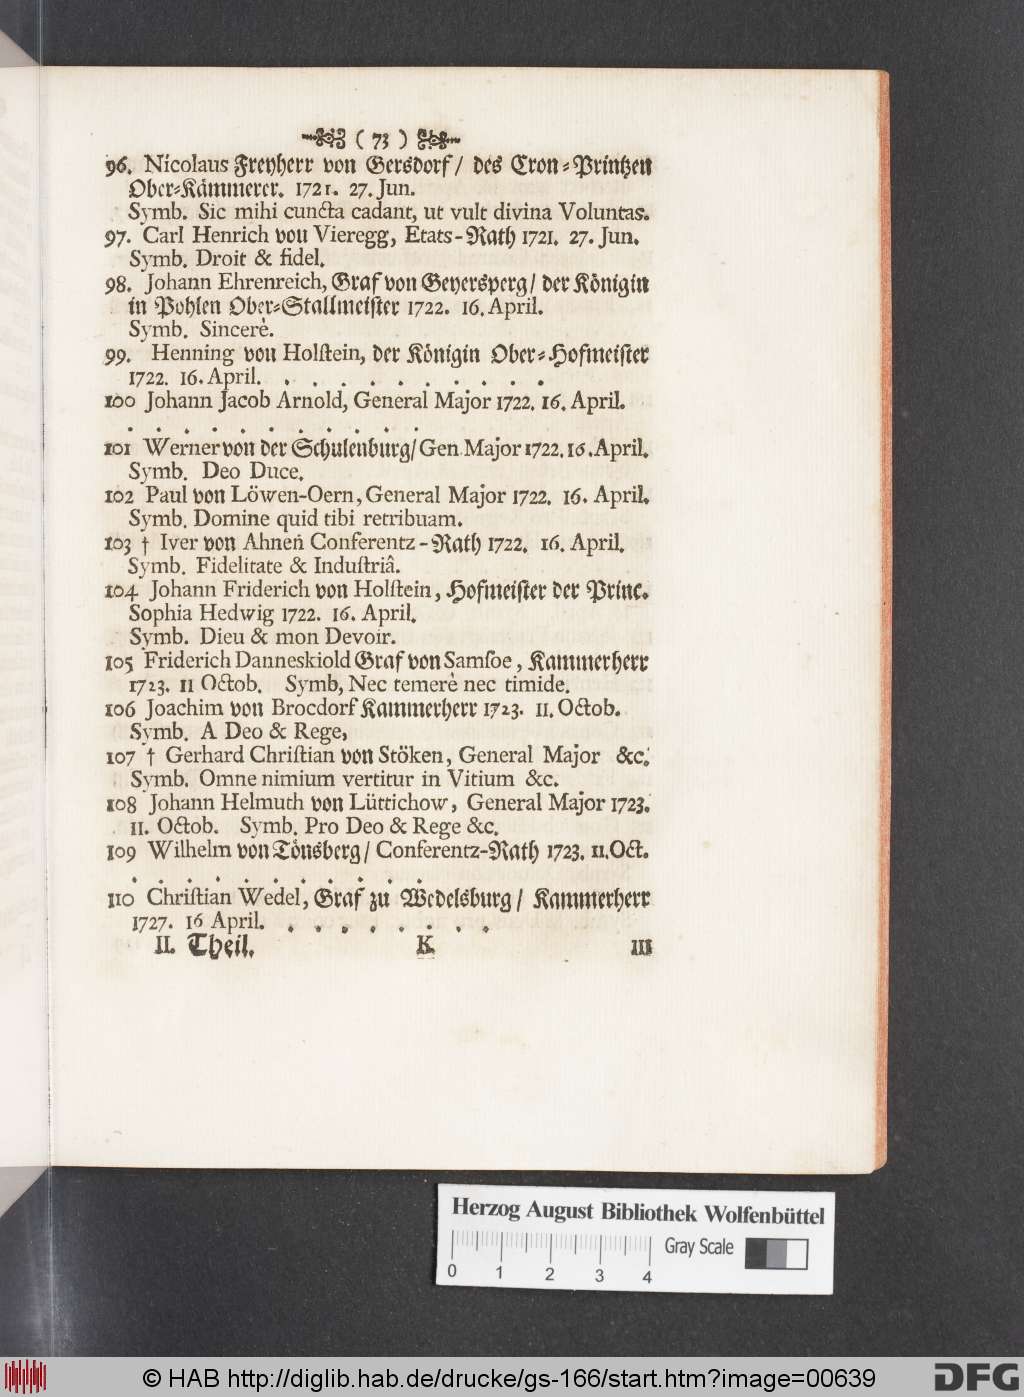 ( 73 )
96. Nicolaus Freyherr von Gersdorf / des Cron-Printzen
Ober-Kämmerer. 1721. 27. Jun.
Symb. Sic mihi cuncta cadant, ut vult divina Voluntas.
97. Carl Henrich von Vieregg, Etats-Rath 1721. 27. Jun.
Symb. Droit & fidel.
98. Johann Ehrenreich, Graf von Geyersperg / der Königin
in Pohlen Ober-Stallmeister 1722. 16. April.
Symb. Sincerè.
99. Henning von Holſtein, der Königin Ober-Hofmeister
1722. 16. April. . . . . . . . . . .
100 Johann Jacob Arnold, General Major 1722. 16. April.
. . . . . . . . . . .
101 Werner von der Schulenburg / Gen. Major 1722. 16. April.
Symb. Deo Duce.
102 Paul von Löwen-Oern, General Major 1722. 16. April.
Symb. Domine quid tibi retribuam.
103 † Iver von Ahnen Conferentz-Rath 1722. 16. April.
Symb. Fidelitate & Induſtriâ.
104 Johann Friderich von Holſtein, Hofmeister der Princ.
Sophia Hedwig 1722. 16. April.
Symb. Dieu & mon Devoir.
105 Friderich Danneskiold Graf von Samſoe, Kammerherr
1723. 11 Octob. Symb, Nec temerè nec timide.
106 Joachim von Brocdorf Kammerherr 1723. 11. Octob.
Symb. A Deo & Rege,
107 † Gerhard Chriſtian von Stöken, General Major &c.
Symb. Omne nimium vertitur in Vitium &c.
108 Johann Helmuth von Lüttichow, General Major 1723.
11. Octob. Symb. Pro Deo & Rege &c.
109 Wilhelm von Tönsberg / Conferentz-Rath 1723. 11. Oct.
. . . . . . . . . . .
110 Chriſtian Wedel, Graf zu Wedelsburg / Kammerherr
1727. 16 April. . . . . . . . .
II. Theil. K 111
Herzog August Bibliothek Wolfenbüttel
Gray Scale
0 1 2 3 4
© HAB http://diglib.hab.de/drucke/gs-166/start.htm?image=00639
DFG